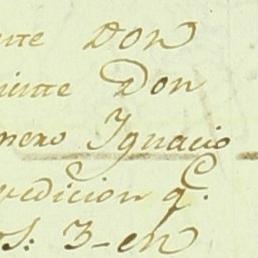 nte Don
niente Don
nero Ignacio
edicion q.
os: 3-en